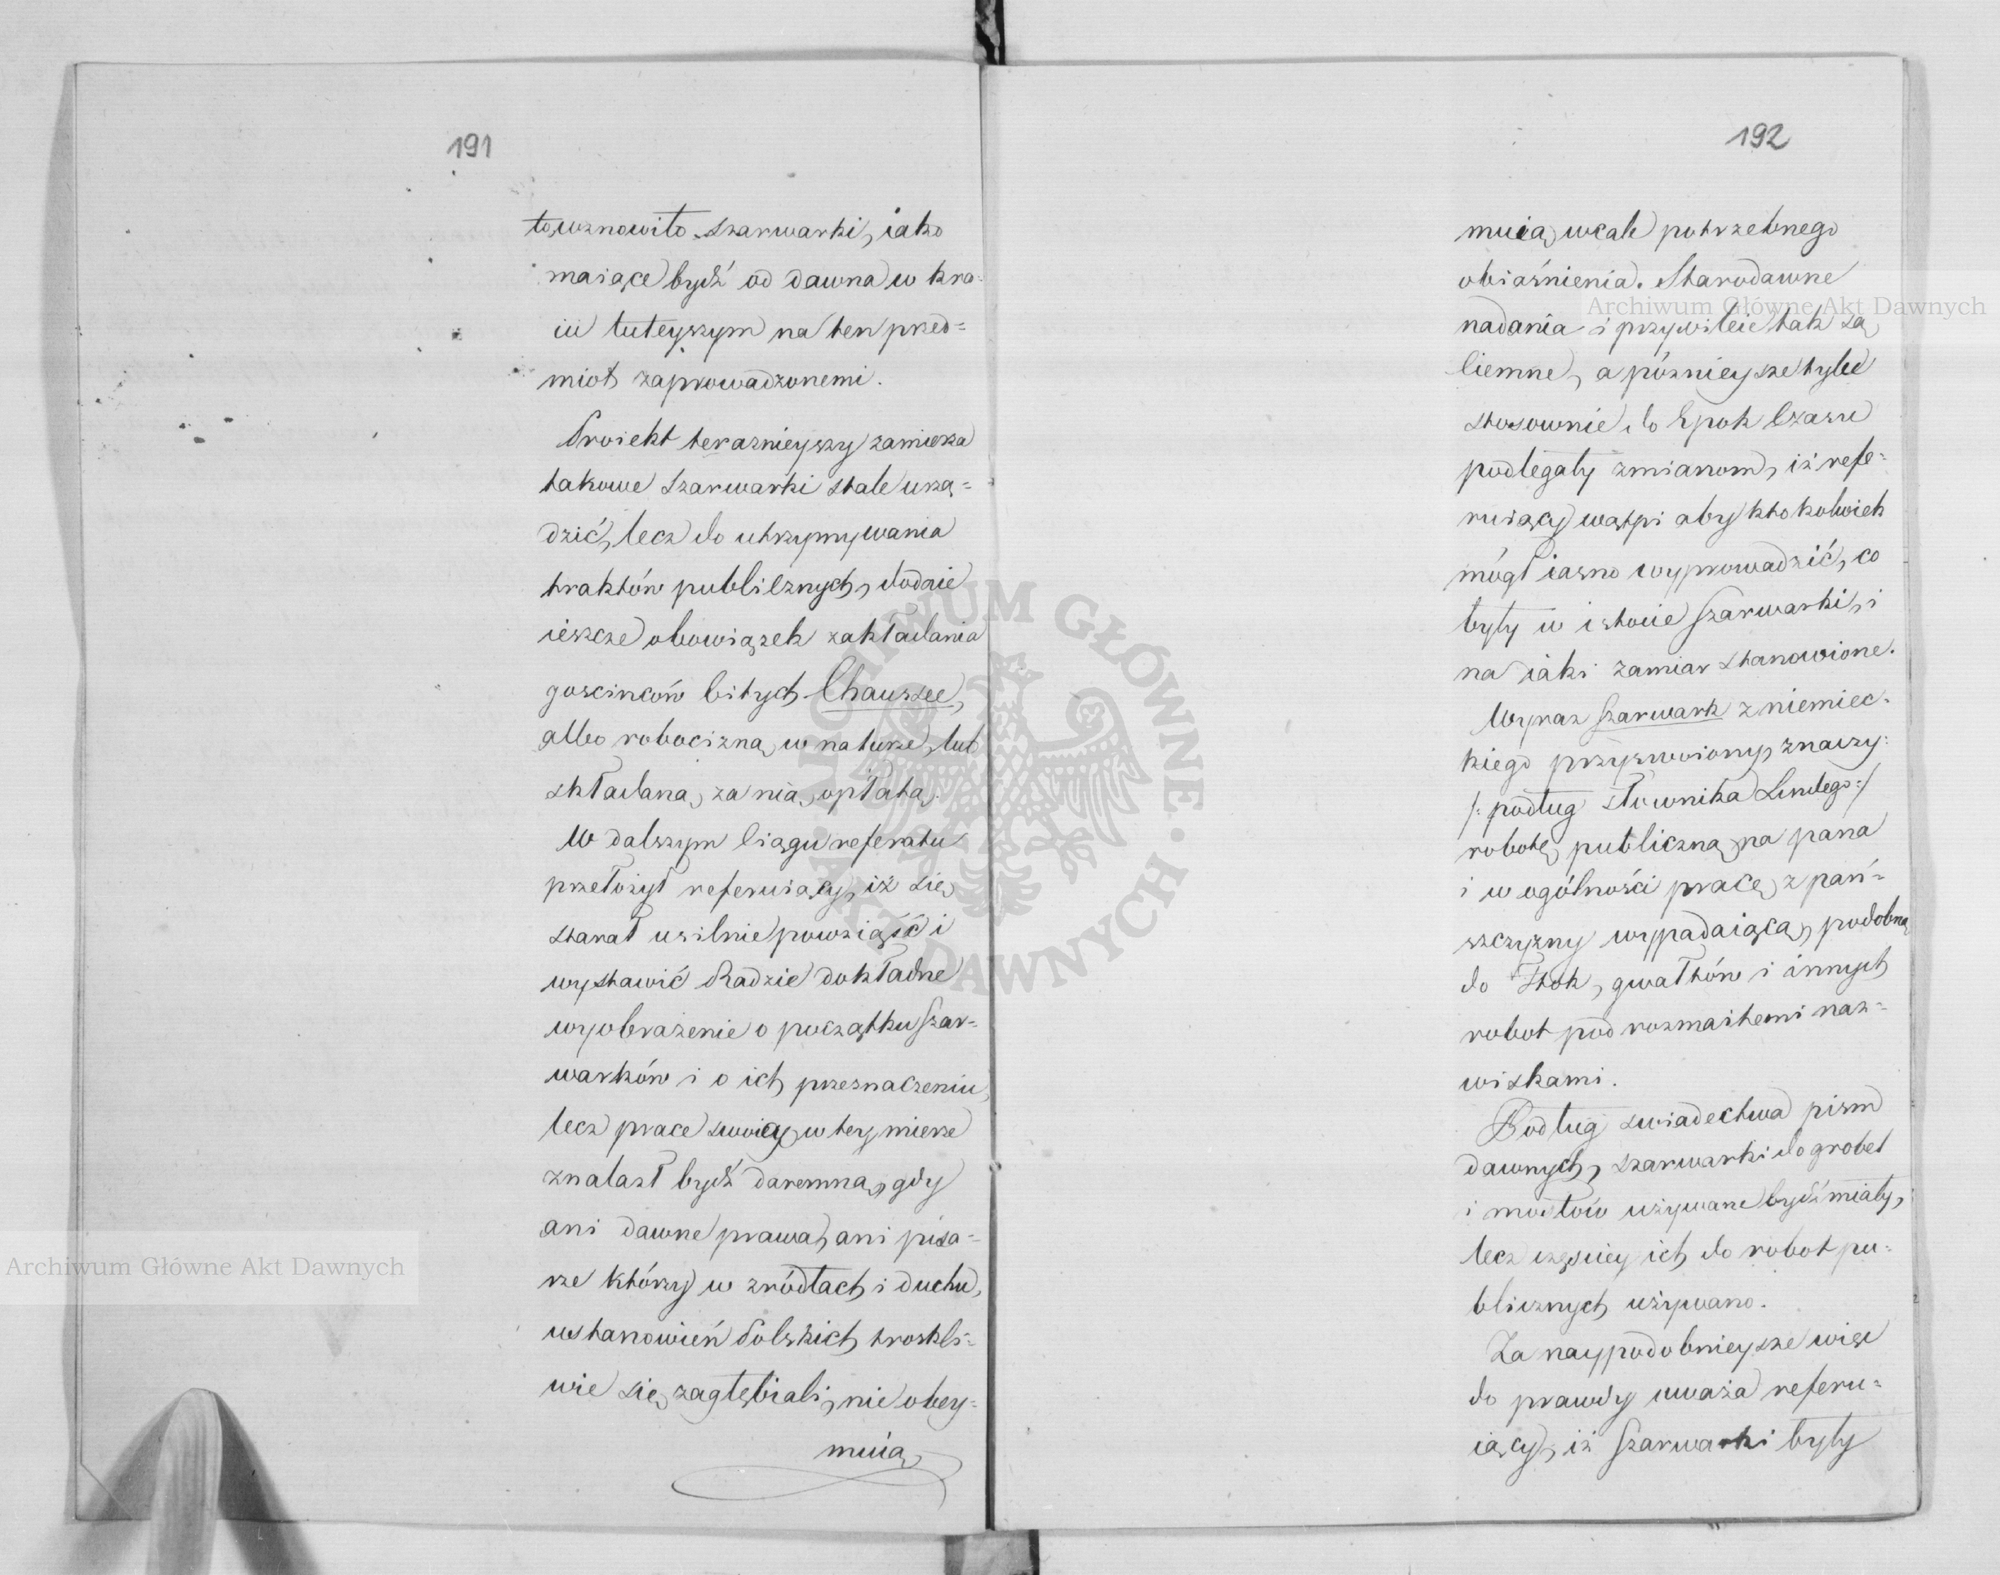 191
to wznowiło szarwarki, iako
maiące bydź od dawna w kra-
iu tuteyszym na ten przed=
miot zaprowadzonemi.
Proiekt teraznieyszy zamierza
takowe szarwarki stale urzą=
dzić, lecz do utrzymywania
traktów publicznych, dodaie
ieszcze obowiązek zakładania
goscinców bitych Chaussee,
albo robocizną w naturze, lub
składaną za nią opłatą.
W dalszym Ciągu referatu
przełożył referuiący, iż się
starał usilnie powziąść i
wystawić Radzie dokładne
wyobrażenie o początku Szar=
warków i o ich przeznaczeniu,
lecz prace swoię w tey mierze
znalazł bydź daremną, gdy
ani dawne prawa, ani pisa=
rze którzy w zródłach i duchu,
ustanowień Polskich troskli=
wie się zagłębiali, nie obey=
muią
192
muią wcale potrzebnego
obiaśnienia. Starodawne
nadania i przywileie tak są
Ciemne, a póznieysze tyle
stosownie do Epok Czasu
podlegały zmianom, iż refe=
ruiący wątpi aby ktokolwiek
mógł iasno wyprowadzić, co
były w istocie Szarwarki, i
na iaki zamiar stanowione.
Wyraz Szarwark z niemiec-
kiego przyswoiony, znaczy
/: podług słownika Lindego :/
robotę publiczną na pana
i w ogólności pracę z pań=
szczyzny wypadaiącą, podobną
do tłok, gwałtów i innych
robot pod rozmaitemi naz=
wiskami.
Podług swiadectwa pism
dawnych, szarwarki do grobel
i mostów używane bydź miały,
lecz częściey ich do robot pu=
blicznych używano.
Za naypodobnieysze więc
do prawdy uważa referu=
iący, iż Szarwarki były
Archiwum Główne Akt Dawnych
Archiwum Główne Akt Dawnych
ARCHIWUM GŁÓWNE AKT DAWNYCH